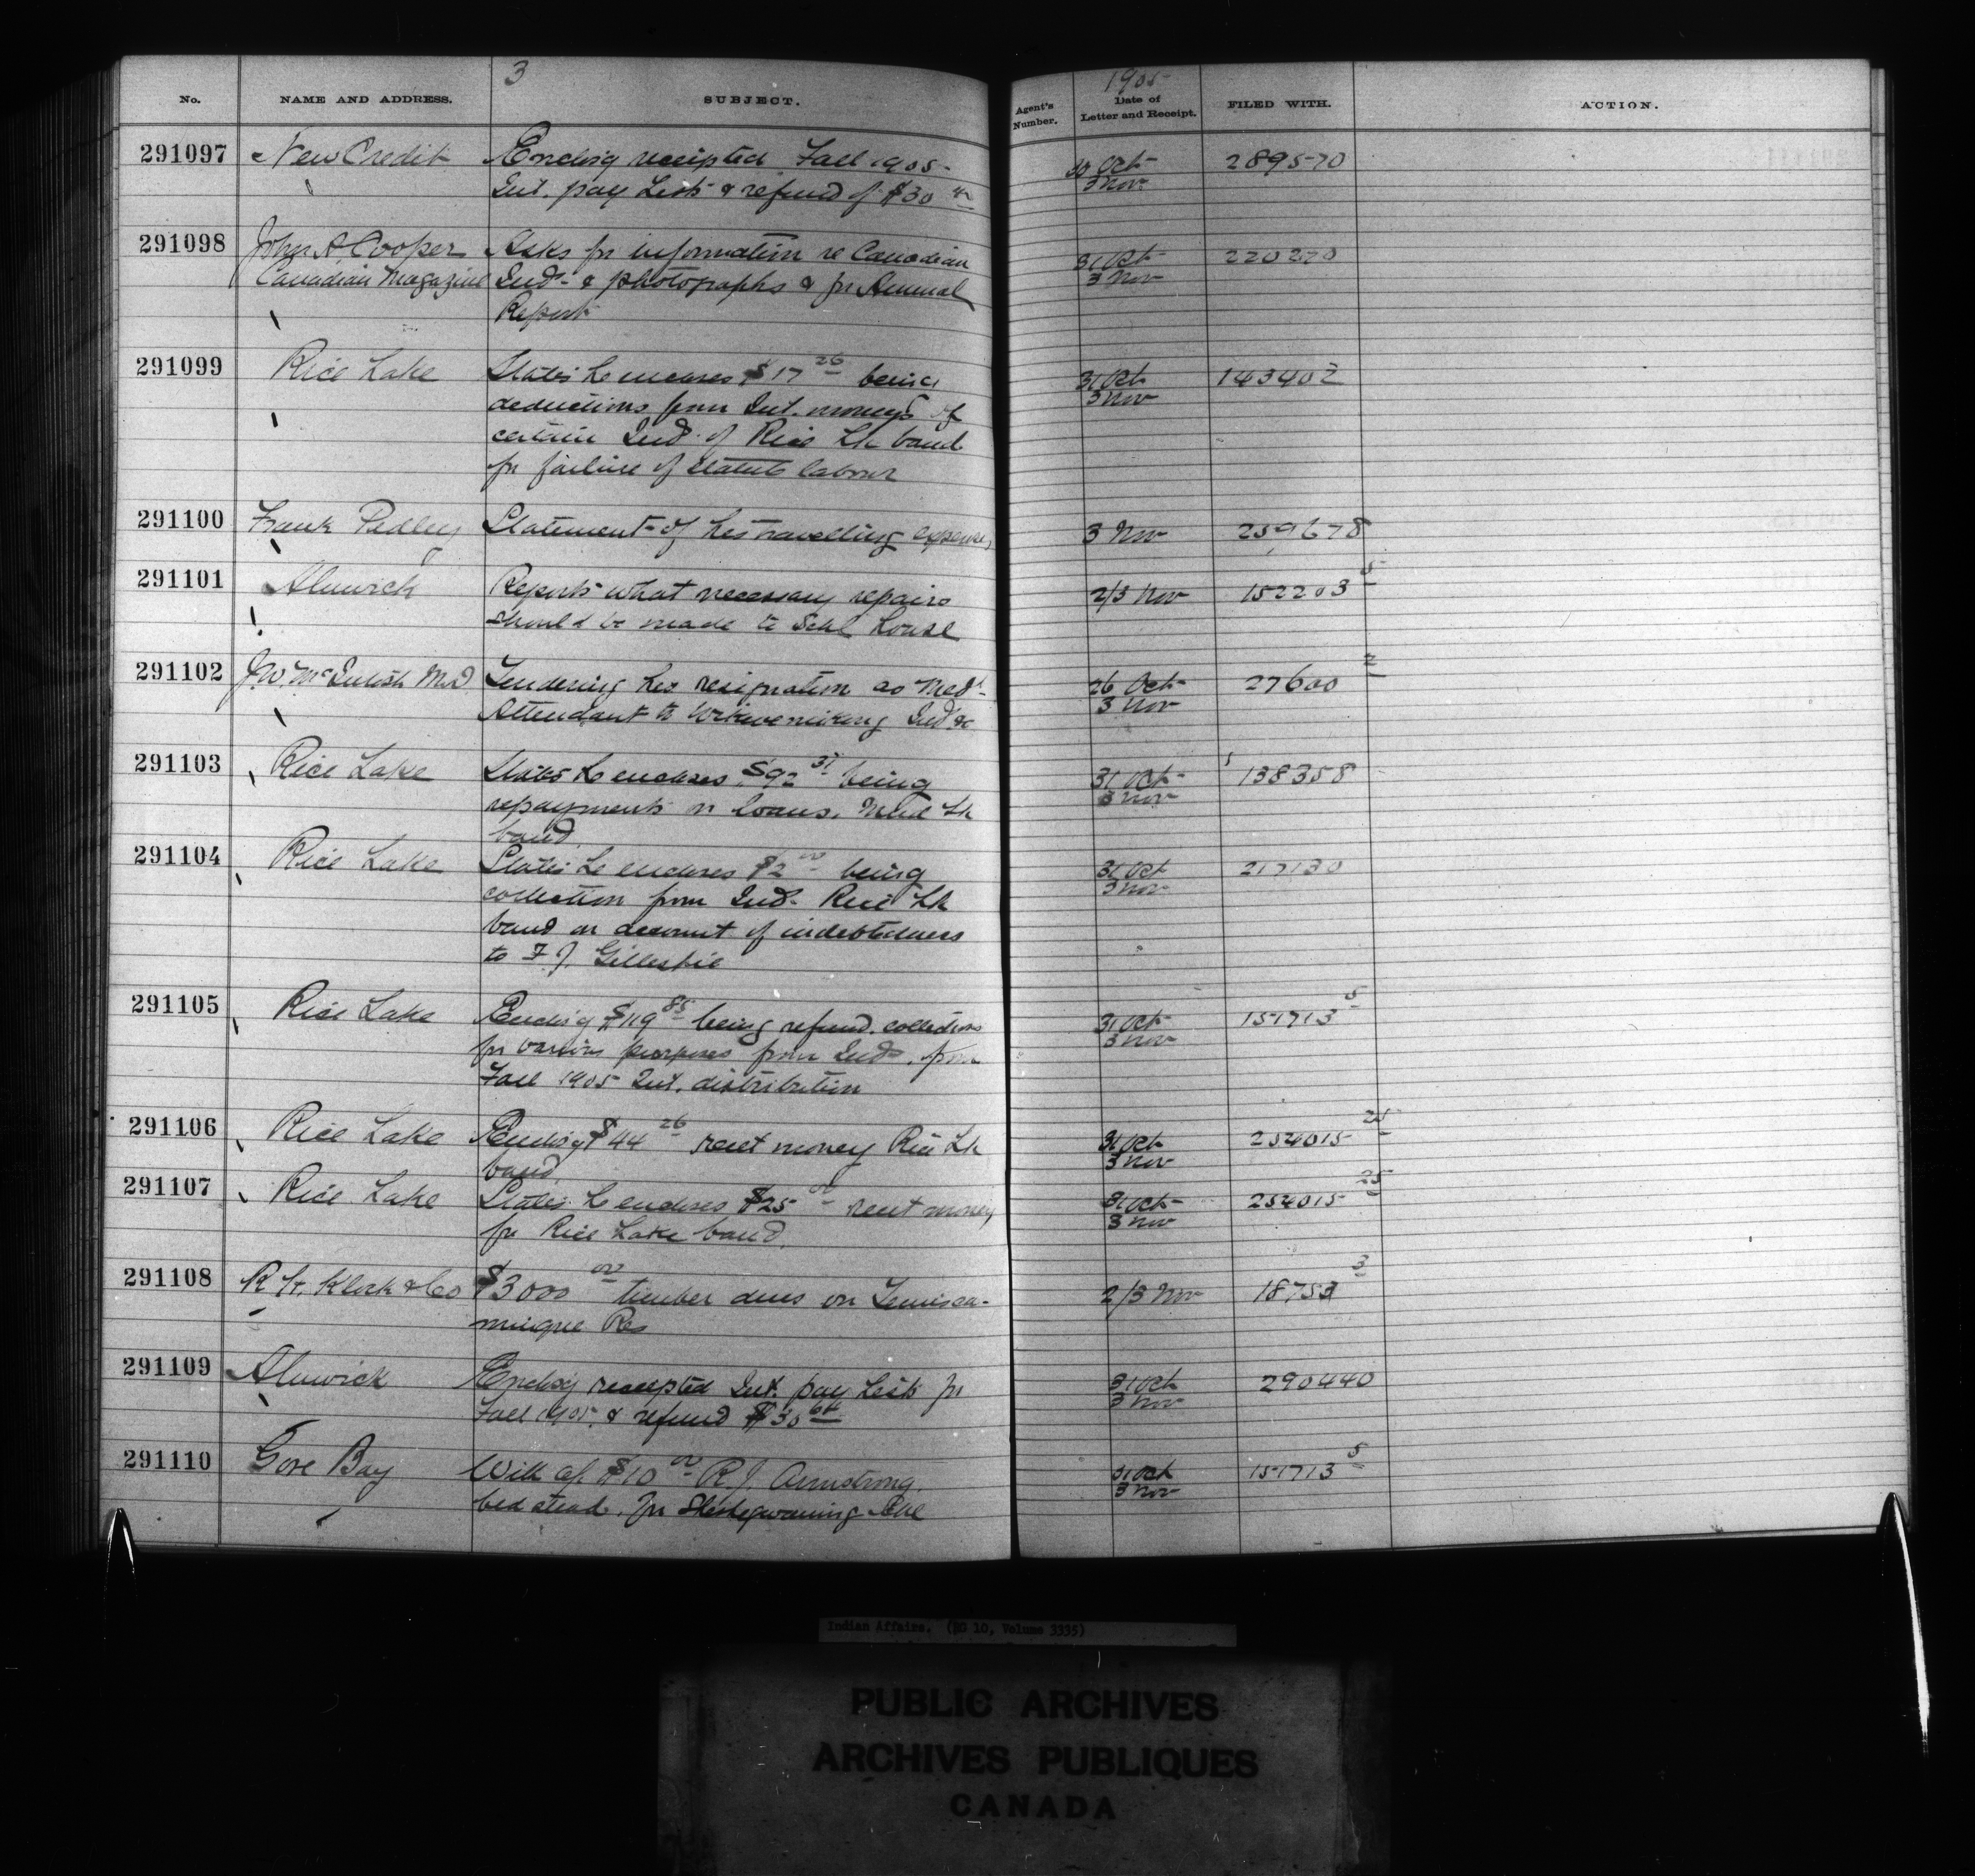 3
1905
No. NAME AND ADDRESS. SUBJECT. Agent's Number. Date of Letter and Receipt. FILED WITH. ACTION.
291097 New Credit Enclosg receipted Fall 1905 30 Oct 289570
Int. pay Lists & refund of $30 3 Nov
291098 John A. Cooper Asks for information re Canadian 31 Oct 220270
Canadian Magazine Inds & photographs & for Annual 3 Nov
Report
291099 Rice Lake States he encloses $17 26 being 31 Oct 143402
deductions from Int. moneys of 3 Nov
certain Inds of Rice Lk band
for failure of statute labour
291100 Frank Pedley Statement of his travelling expenses 3 Nov 259678
291101 Alnwick Reports what necessary repairs 2/3 Nov 152203 5
should be made to Schl House
291102 J.W. McIntosh M.D. Tendering his resignation as Medl 26 Oct 27600 2
Attendant to Wikwemikong Inds &c 3 Nov
291103 Rice Lake States he encloses $92 31 being 31 Oct 138358
repayments on loans. Mud Lk 3 Nov
band.
291104 Rice Lake States he encloses $2 00 being 31 Oct 217130
collection from Inds Rice Lk 3 Nov
band on account of indebtedness
to F J. Gillespie
291105 Rice Lake Enclosg $119 85 being refund. collections 31 Oct 151713 5
for various purposes from Inds. from 3 Nov
Fall 1905 Int. distribution
291106 Rice Lake Enclosg $44 26 rent money Rice Lk 31 Oct 254015 25
band 3 Nov
291107 Rice Lake States he encloses $25 00 rent money 31 Oct 254015 25
for Rice Lake band. 3 Nov
291108 R. H. Klock & Co $3000 00 timber dues on Temisca- 2/3 Nov 18753 3
mingue Res
291109 Alnwick Enclosg receipted Int. pay Lists for 31 Oct 290440
Fall 1905. & refund $30 64 3 Nov
291110 Gore Bay With a/c $10 00 R.J. Armstrong. 31 Oct 151713 5
bed stead. for Sheshegwaning 3 Nov
Indian Affairs. (RG 10, Volume 3335)
PUBLIC ARCHIVES
ARCHIVES PUBLIQUES
CANADA